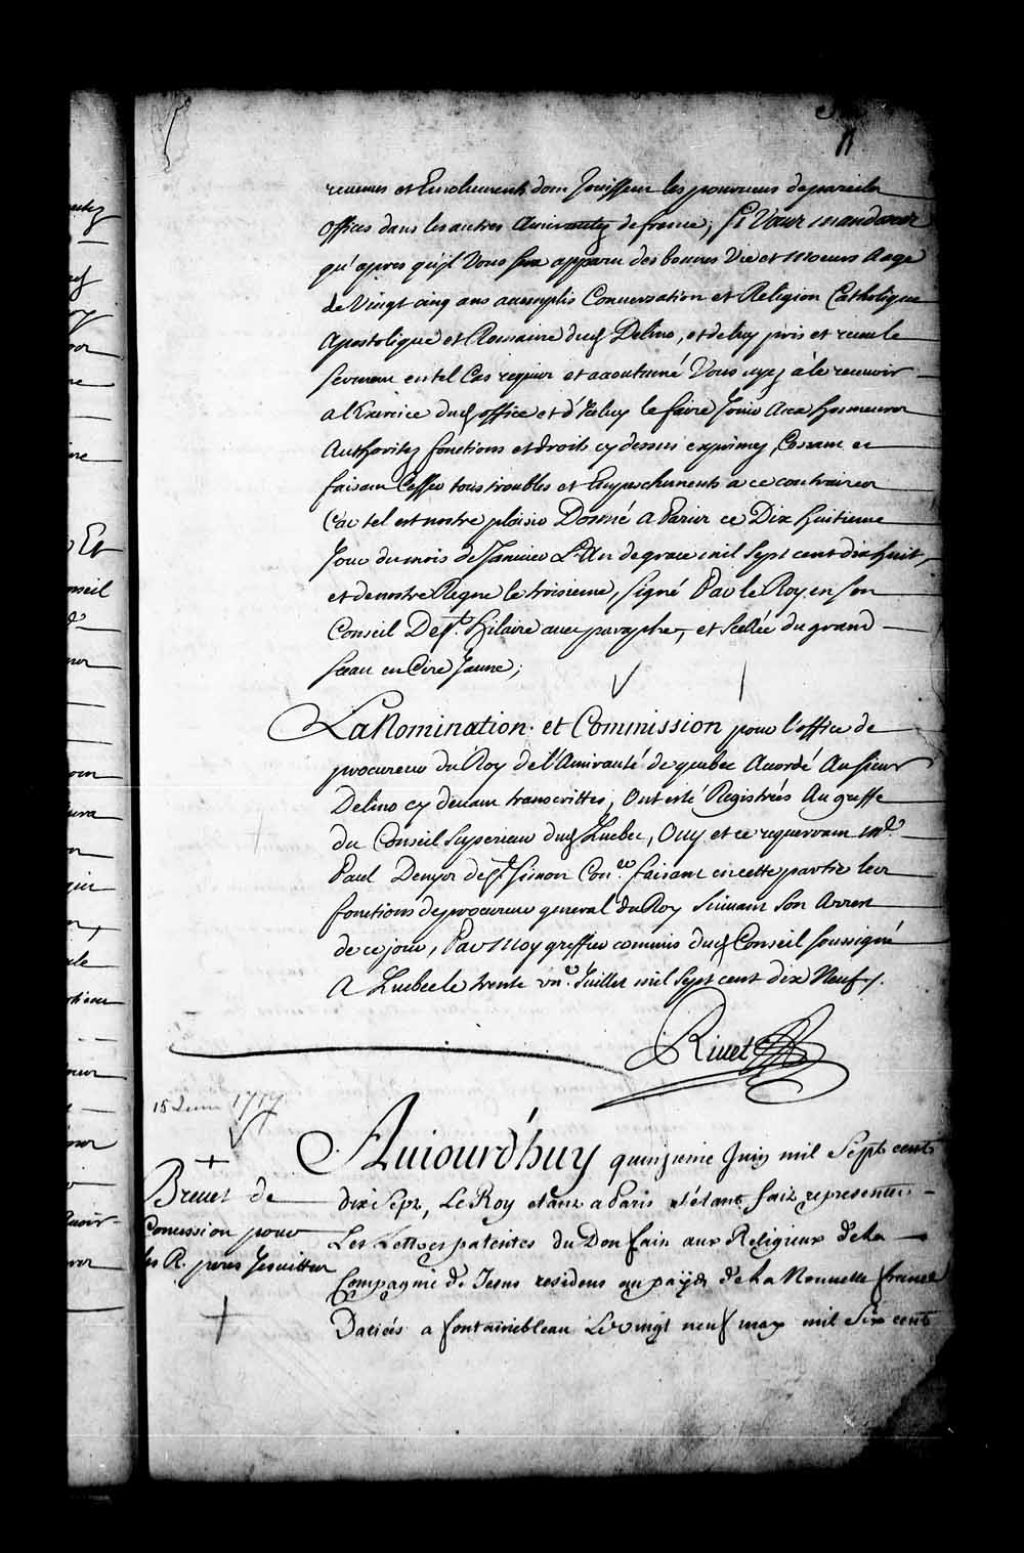 11
revenus et Emoluments dont Jouissent les pourveus de pareils
offices dans les autres Amirautez de france; Si Vous mandons
qu'apres qu'il Vous sera apparu des bonnes Vie et Moeurs aage
de Vingt cinq ans accomplis Conversation et Religion Catholique
Apostolique et Romaine dud Delino, et de luy pris et receu le
serment en tel Cas requis et accoutumé Vous ayez à le recevoir
a l'Exercice dud office et d'Iceluy le faire Jouir aux honneurs
Authoritez fonctions et droits cy dessus exprimez, Cessant et
faisant Cesser tous troubles et Empeschements a ce contraires
Car tel est nostre plaisir Donné a Paris ce Dix huitieme
Jour du mois de Janvier L'An de grace mil sept cent dix huit,
et de nostre Regne le troisieme, signé Par le Roy en son
Conseil De St. hilaire avec paraphe, et Scellée du grand
sceau en Cire Jaune;
La Nomination et Commission pour l'office de
procureur du Roy de l'Amirauté de quebec Acordé Au sieur
Delino cy devant transcrittes, Ont esté Registrées Au greffe
du Conseil Superieur dud Quebec, Ouy et ce requerant Mr.
Paul Denys de St Simon Coner. faisant en cette partie les
fonctions de procureur general du Roy suivant son Arrest
de ce jour, Par Moy greffier commis dud Conseil soussigné
A Quebec le trente un. Juillet mil sept cent dix Neuf.
Rivet
15 Juin 1717
Brevet de
Concession pour
les R. peres Jesuittes
Aujourd'huy quinzieme Juin mil Sept cent
dix Sept, Le Roy etant a Paris s'étant fait representer
Les Lettres patentes du Don fait aux Religieux de La
Compagnie de Jesus residens au païs de La Nouvelle france
Datées a fontainebleau Le vingt neuf may mil Six cent